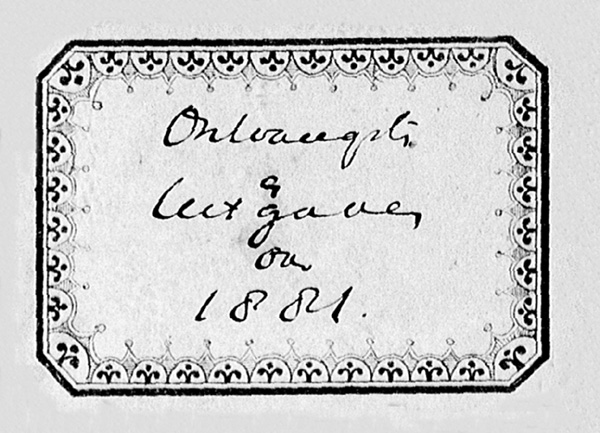 Ontvangsten
&
Uitgaven
over
1881.